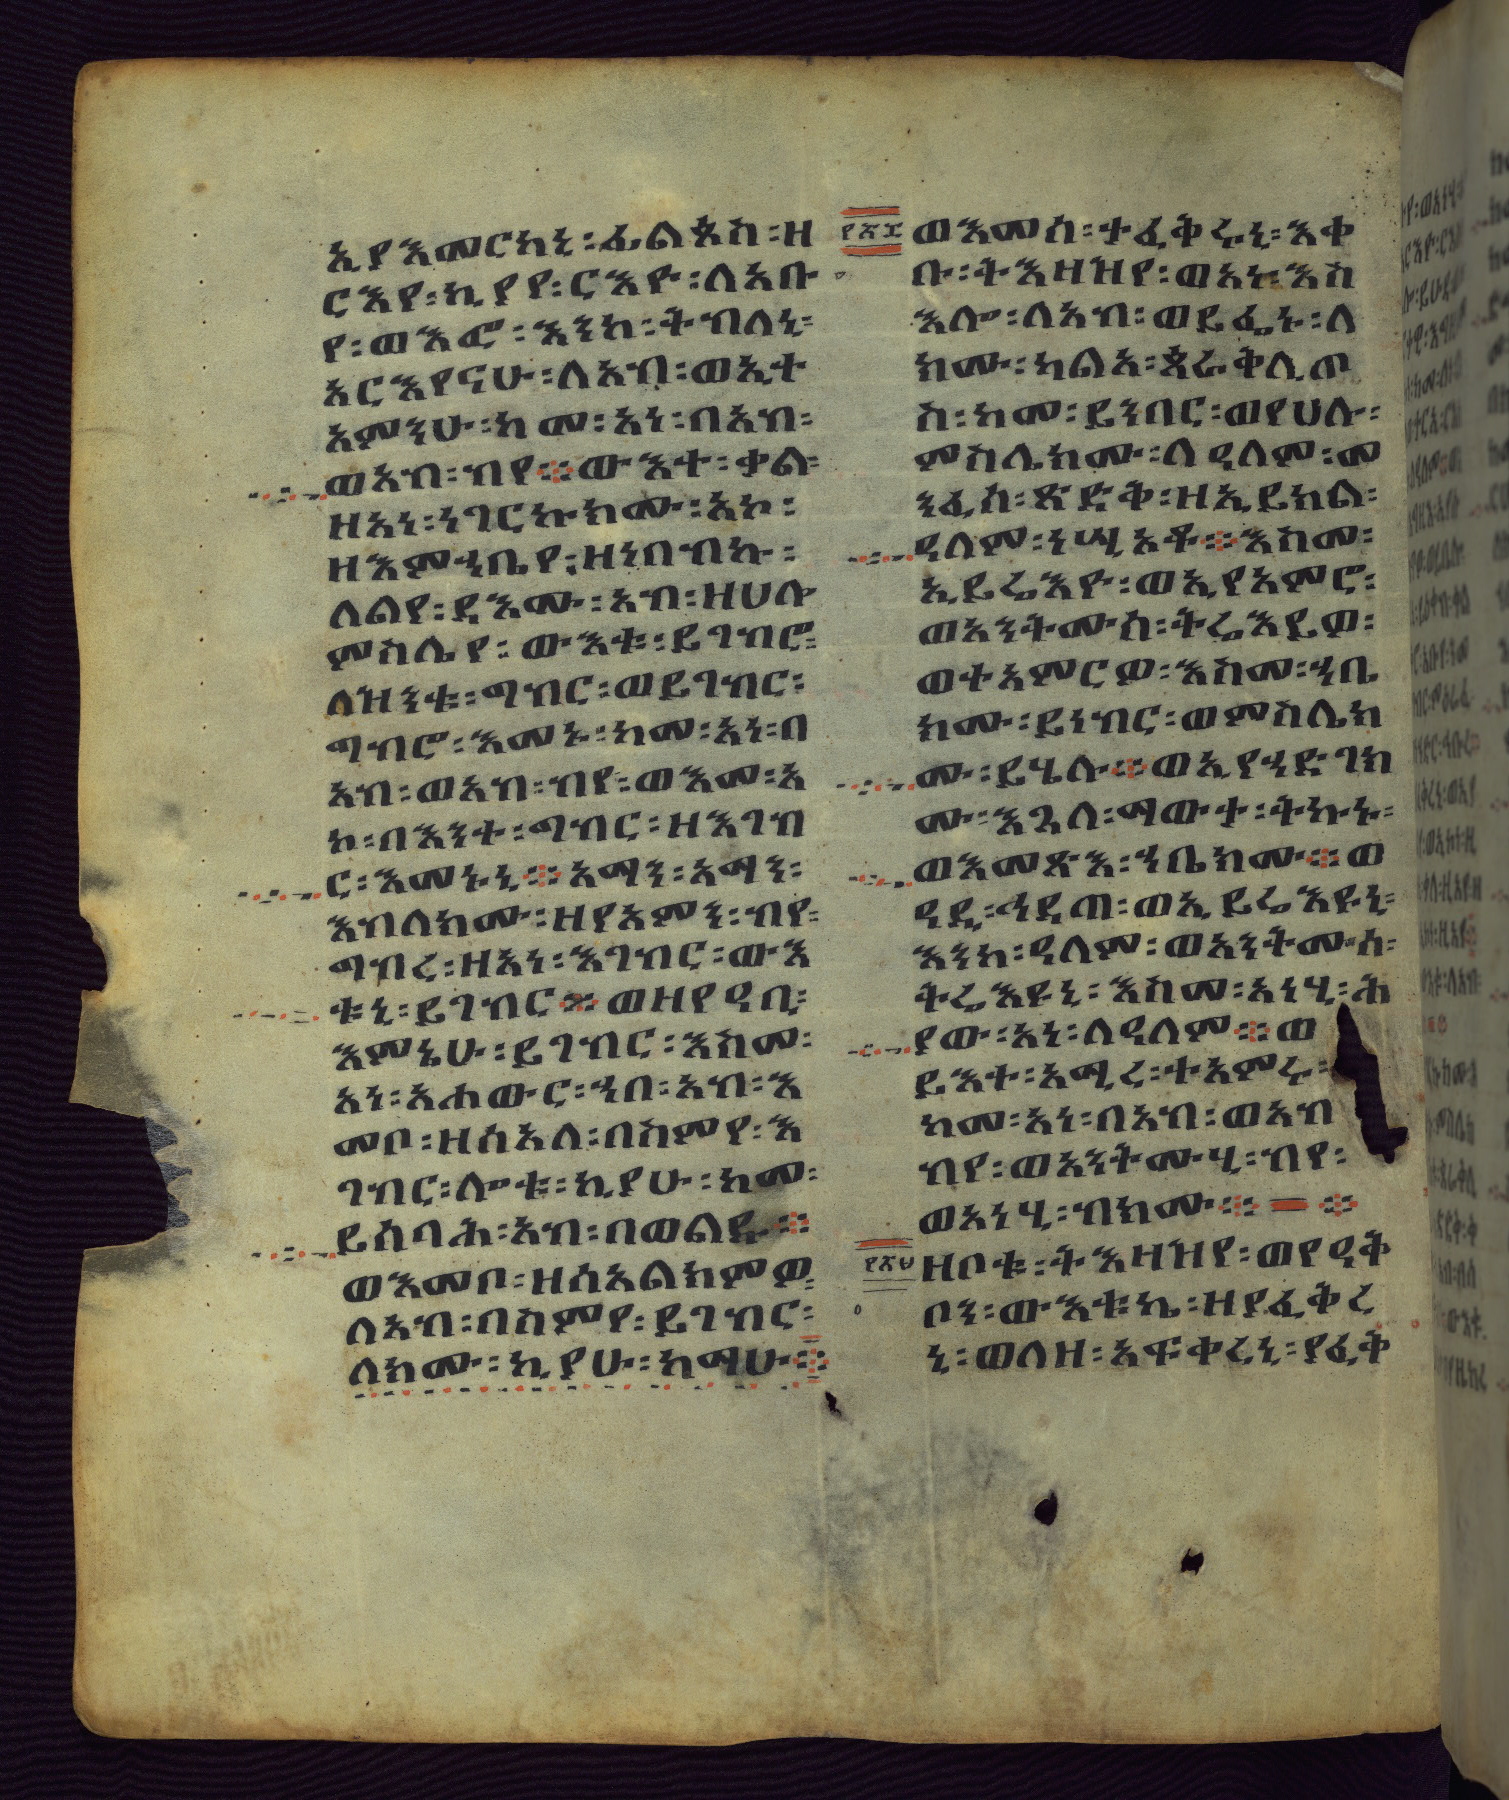 ኢያእመርከኒ፡ፊልጶስ፡ዘ
ርእየ፡ኪያየ፡ርእዮ፡ለአቡ
የ፡ወእፎ፡እንከ፡ትብለኒ፡
አርእየናሁ፡ለአብ፡ወኢተ
አምንሁ፡ከመ፡አነ፡በአብ፡
ወአብ፡ብየ፨ውእተ፡ቃል፡
ዘአነ፡ነገርኩክሙ፡አኮ፡
ዘእምኀቤየ፡ዘነበብኩ፡
ለልየ፡ዳእሙ፡አብ፡ዘሀሎ
ምስሌየ፡ውእቱ፡ይገብሮ፡
ለዝንቱ፡ግብር፡ወይገብር፡
ግብሮ፡እመኑ፡ከመ፡አነ፡በ
አብ፡ወአብ፡ብየ፡ወእመ፡አ
ኮ፡በእንተ፡ግብር፡ዘእገብ
ር፡እመኑኒ፨አማን፡አማን፡
እብለክሙ፡ዘየአምን፡ብየ፡
ግብረ፡ዘአነ፡እገብር፡ውእ
ቱኒ፡ይገብር፨ወዘየዐቢ፡
እምኔሁ፡ይገብር፡እስመ፡
አነ፡አሐውር፡ኀበ፡አብ፡እ
መቦ፡ዘሰአለ፡በስምየ፡እ
ገብር፡ሎቱ፡ኪያሁ፡ከመ፡
ይሰባሕ፡አብ፡በወልዱ፨
ወእመቦ፡ዘሰአልክምዎ፡
ለአብ፡በስምየ፡ይገብር፡
ለክሙ፡ኪያሁ፡ከማሁ፨
ወእመሰ፡ተፈቅሩኒ፡እቀ
ቡ፡ትእዛዝየ፡ወአነ፡እስ
እሎ፡ለአብ፡ወይፌኑ፡ለ
ክሙ፡ካልአ፡ጰራቅሊጦ
ስ፡ከመ፡ይንበር፡ወየሀሉ፡
ምስሌክሙ፡ለዓለም፡መ
ንፈሰ፡ጽድቅ፡ዘኢይክል፡
ዓለም፡ነሢአቶ፨እስመ፡
ኢይሬእዮ፡ወኢየአምሮ፡
ወአንትሙሰ፡ትሬእይዎ፡
ወተአምርዎ፡እስመ፡ኀቤ
ክሙ፡ይነብር፡ወምስሌክ
ሙ፡ይሄሉ፨ወኢየኀድገክ
ሙ፡እጓለ፡ማውተ፡ትኩኑ፡
ወእመጽእ፡ኀቤክሙ፨ወ
ዓዲ፡ኅዳጠ፡ወኢይሬእየኒ፡
እንከ፡ዓለም፡ወአንትሙሰ፡
ትሬእዩኒ፡እስመ፡አነሂ፡ሕ
ያው፡አነ፡ለዓለም፨ወ
ይእተ፡አሚረ፡ተአምሩ፡
ከመ፡አነ፡በአብ፡ወአብ
ብየ፡ወአንትሙሂ፡ብየ፡
ወአነሂ፡ብክሙ፨ ፨
ዘቦቱ፡ትእዛዝየ፡ወየዓቅ
ቦን፡ውእቱኬ፡ዘያፈቅረ
ኒ፡ወለዘ፡አፍቀረኒ፡ያፈቅ